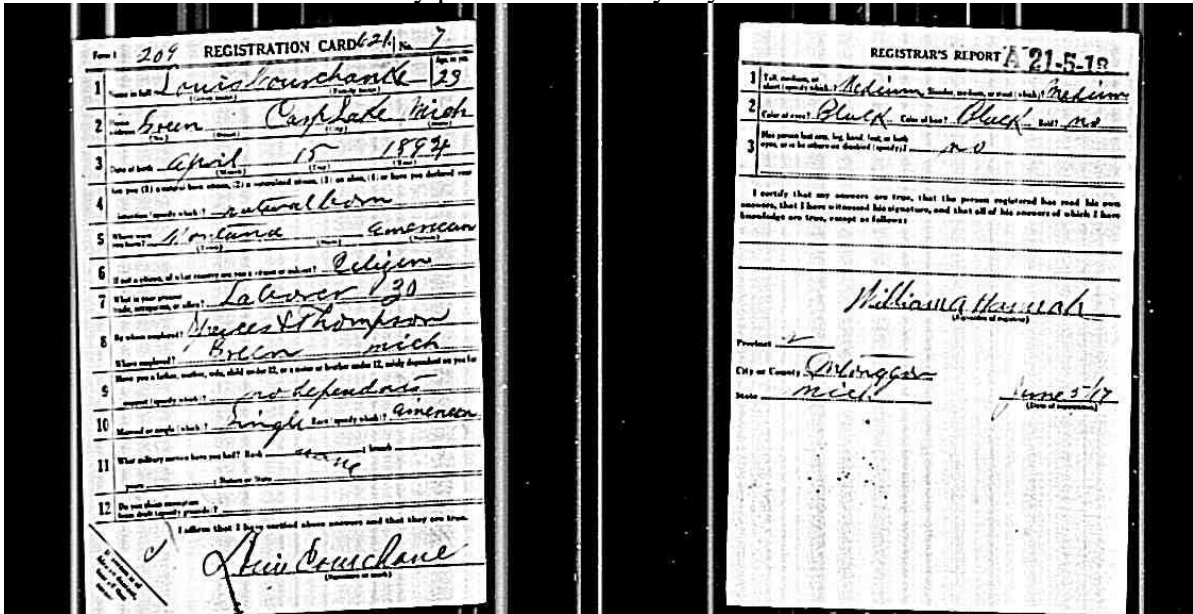 Form 1 209 REGISTRATION CARD 621 No. 7
1 Name in full Louis Courchane Age, in yrs. 23
(Given name) (Family name)
2 Home address Green Carp Lake Mich
(No.) (Street) (City) (State)
3 Date of birth April 15 1894
(Month) (Day) (Year)
Are you (1) a natural born citizen, (2) a naturalized citizen, (3) an alien, (4) or have you declared your
4 intention (specify which)? natural born
5 Where were you born? Montana American
(Town) (State) (Nation)
6 If not a citizen, of what country are you a citizen or subject? Citizen
7 What is your present trade, occupation, or office? Laborer 30
8 By whom employed? & Thompson
Where employed? Green mich
Have you a father, mother, wife, child under 12, or a sister or brother under 12, solely dependent on you for
9 support (specify which)? no dependents
10 Married or single (which)? Single Race (specify which)? American
11 What military service have you had? Rank none ; branch
years ; Nation or State
12 Do you claim exemption from draft (specify grounds)?
I affirm that I have verified above answers and that they are true.
Louis Courchane
(Signature or mark)
REGISTRAR'S REPORT A 21-5-18
1 Tall, medium, or short (specify which)? Medium Slender, medium, or stout (which)? Medium
2 Color of eyes? Black Color of hair? Black Bald? no
3 Has person lost arm, leg, hand, foot, or both eyes, or is he otherwise disabled (specify)? no
I certify that my answers are true, that the person registered has read his own
answers, that I have witnessed his signature, and that all of his answers of which I have
knowledge are true, except as follows:
William A Hannah
(Signature of registrar)
Precinct 2
City or County Ontonagon
State mich June 5/17
(Date of registration)